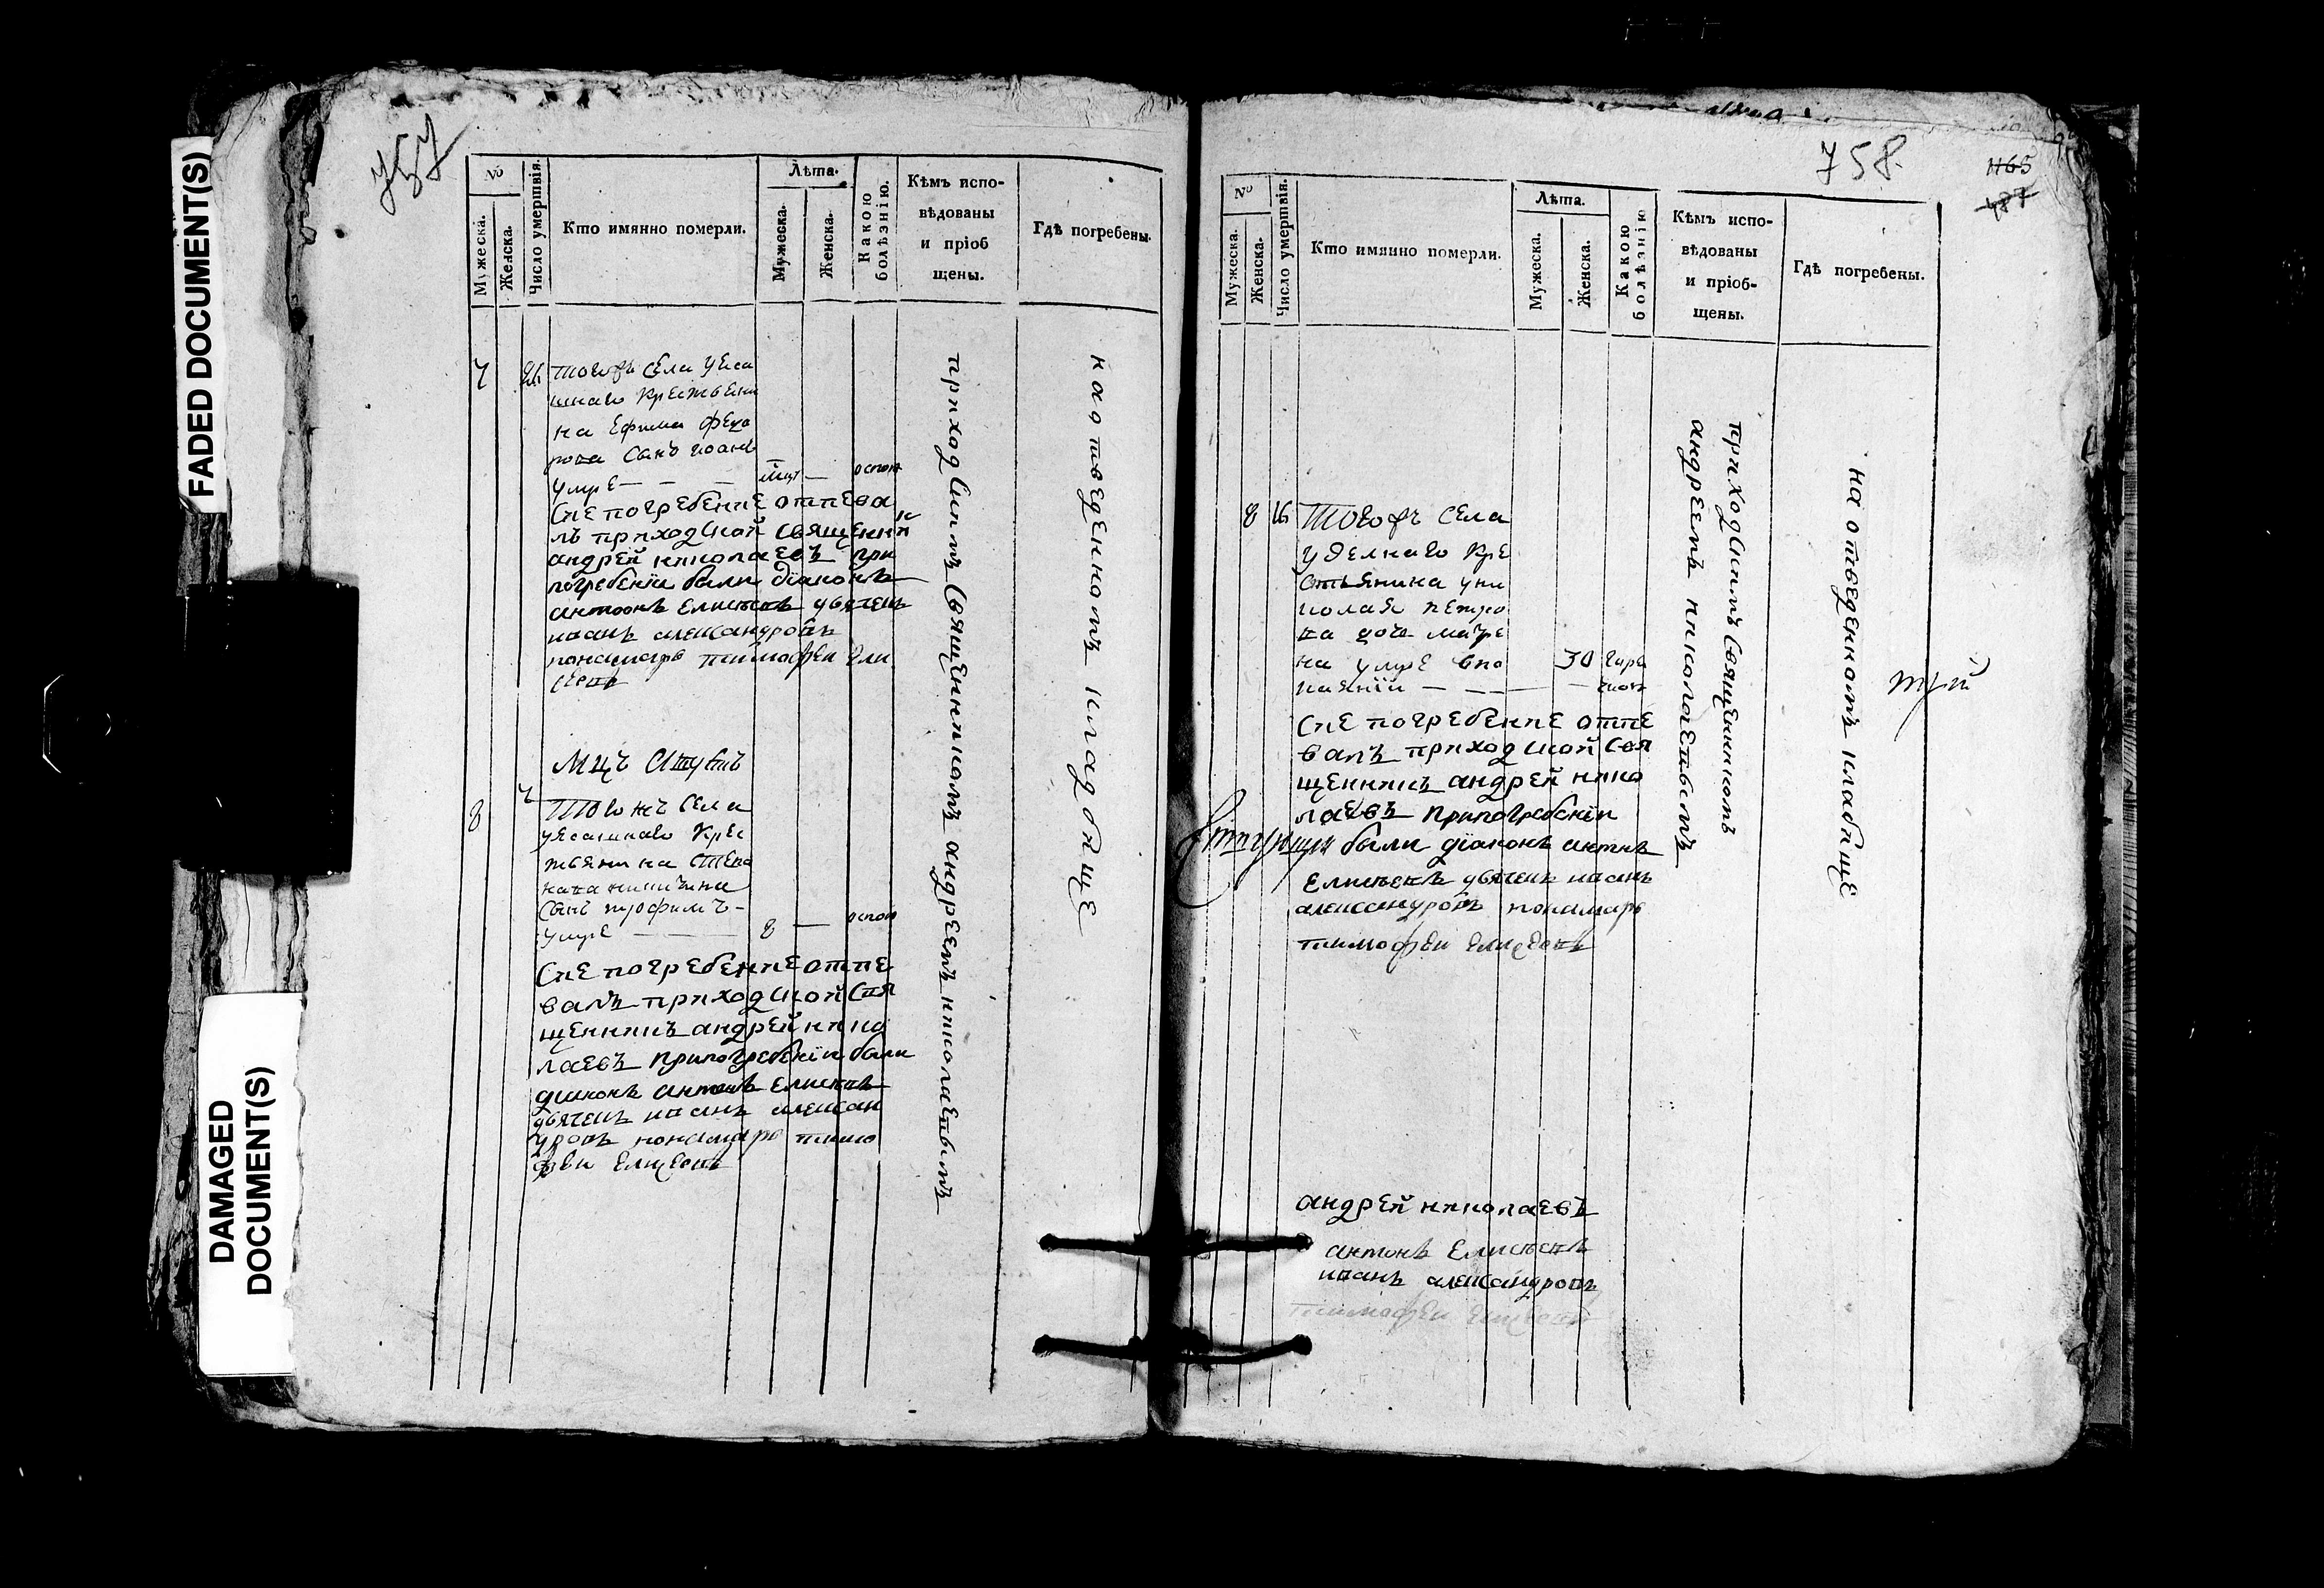 FADED DOCUMENT(S)
DAMAGED
DOCUMENT(S)
757
№
Мужеска.
Женска.
Число умертвія.
Кто имянно померли.
Лѣта.
Мужеска.
Женска.
Какою
болѣзнію.
Кѣмъ испо-
вѣдованы
и пріоб
щены.
Гдѣ погребены.
7
села
на Ефима Федо
рова сынъ
умре
Сие погребение отпева
лъ приходской священни
андрей николаевъ при
погребенїи были дїаконъ
антонъ Елисеевъ дьячекъ
иванъ александровъ
пономаръ тимофеи Ели
сеевъ
приходскимъ священникомъ андреемъ николаевымъ
на отведенномъ кладбище
Мцъ
8
села
Крес
тьянина
сынъ трофимъ
умре
8
Сие погребение отпе
валъ приходской свя
щенникъ андрей нико
лаевъ при погребенїи были
дїаконъ антонъ Елисеевъ
дьячекъ иванъ алексан
дровъ пономаръ тимо
феи Елисеевъ
758
1165
487
№
Мужеска.
Женска.
Число умертвія.
Кто имянно померли.
Лѣта.
Мужеска.
Женска.
Какою
болѣзнію
Кѣмъ испо-
вѣдованы
и пріоб-
щены.
Гдѣ погребены.
8
села
уделнаго Кре
стьянина у ни
колая петро
ва дочь матре
на умре впо
каянїи
30
Сие погребение отпе
валъ приходской свя
щенникъ андрей нико
лаевъ При погребенїи
были дїаконъ антонъ
Елисеевъ дьячекъ иванъ
александровъ пономаръ
тимофеи Елисеевъ
приходскимъ священникомъ
андреемъ николаевымъ
на отведенномъ кладбище
андрей николаевъ
антонъ Елисеевъ
иванъ александровъ
тимофеи Елисеевъ